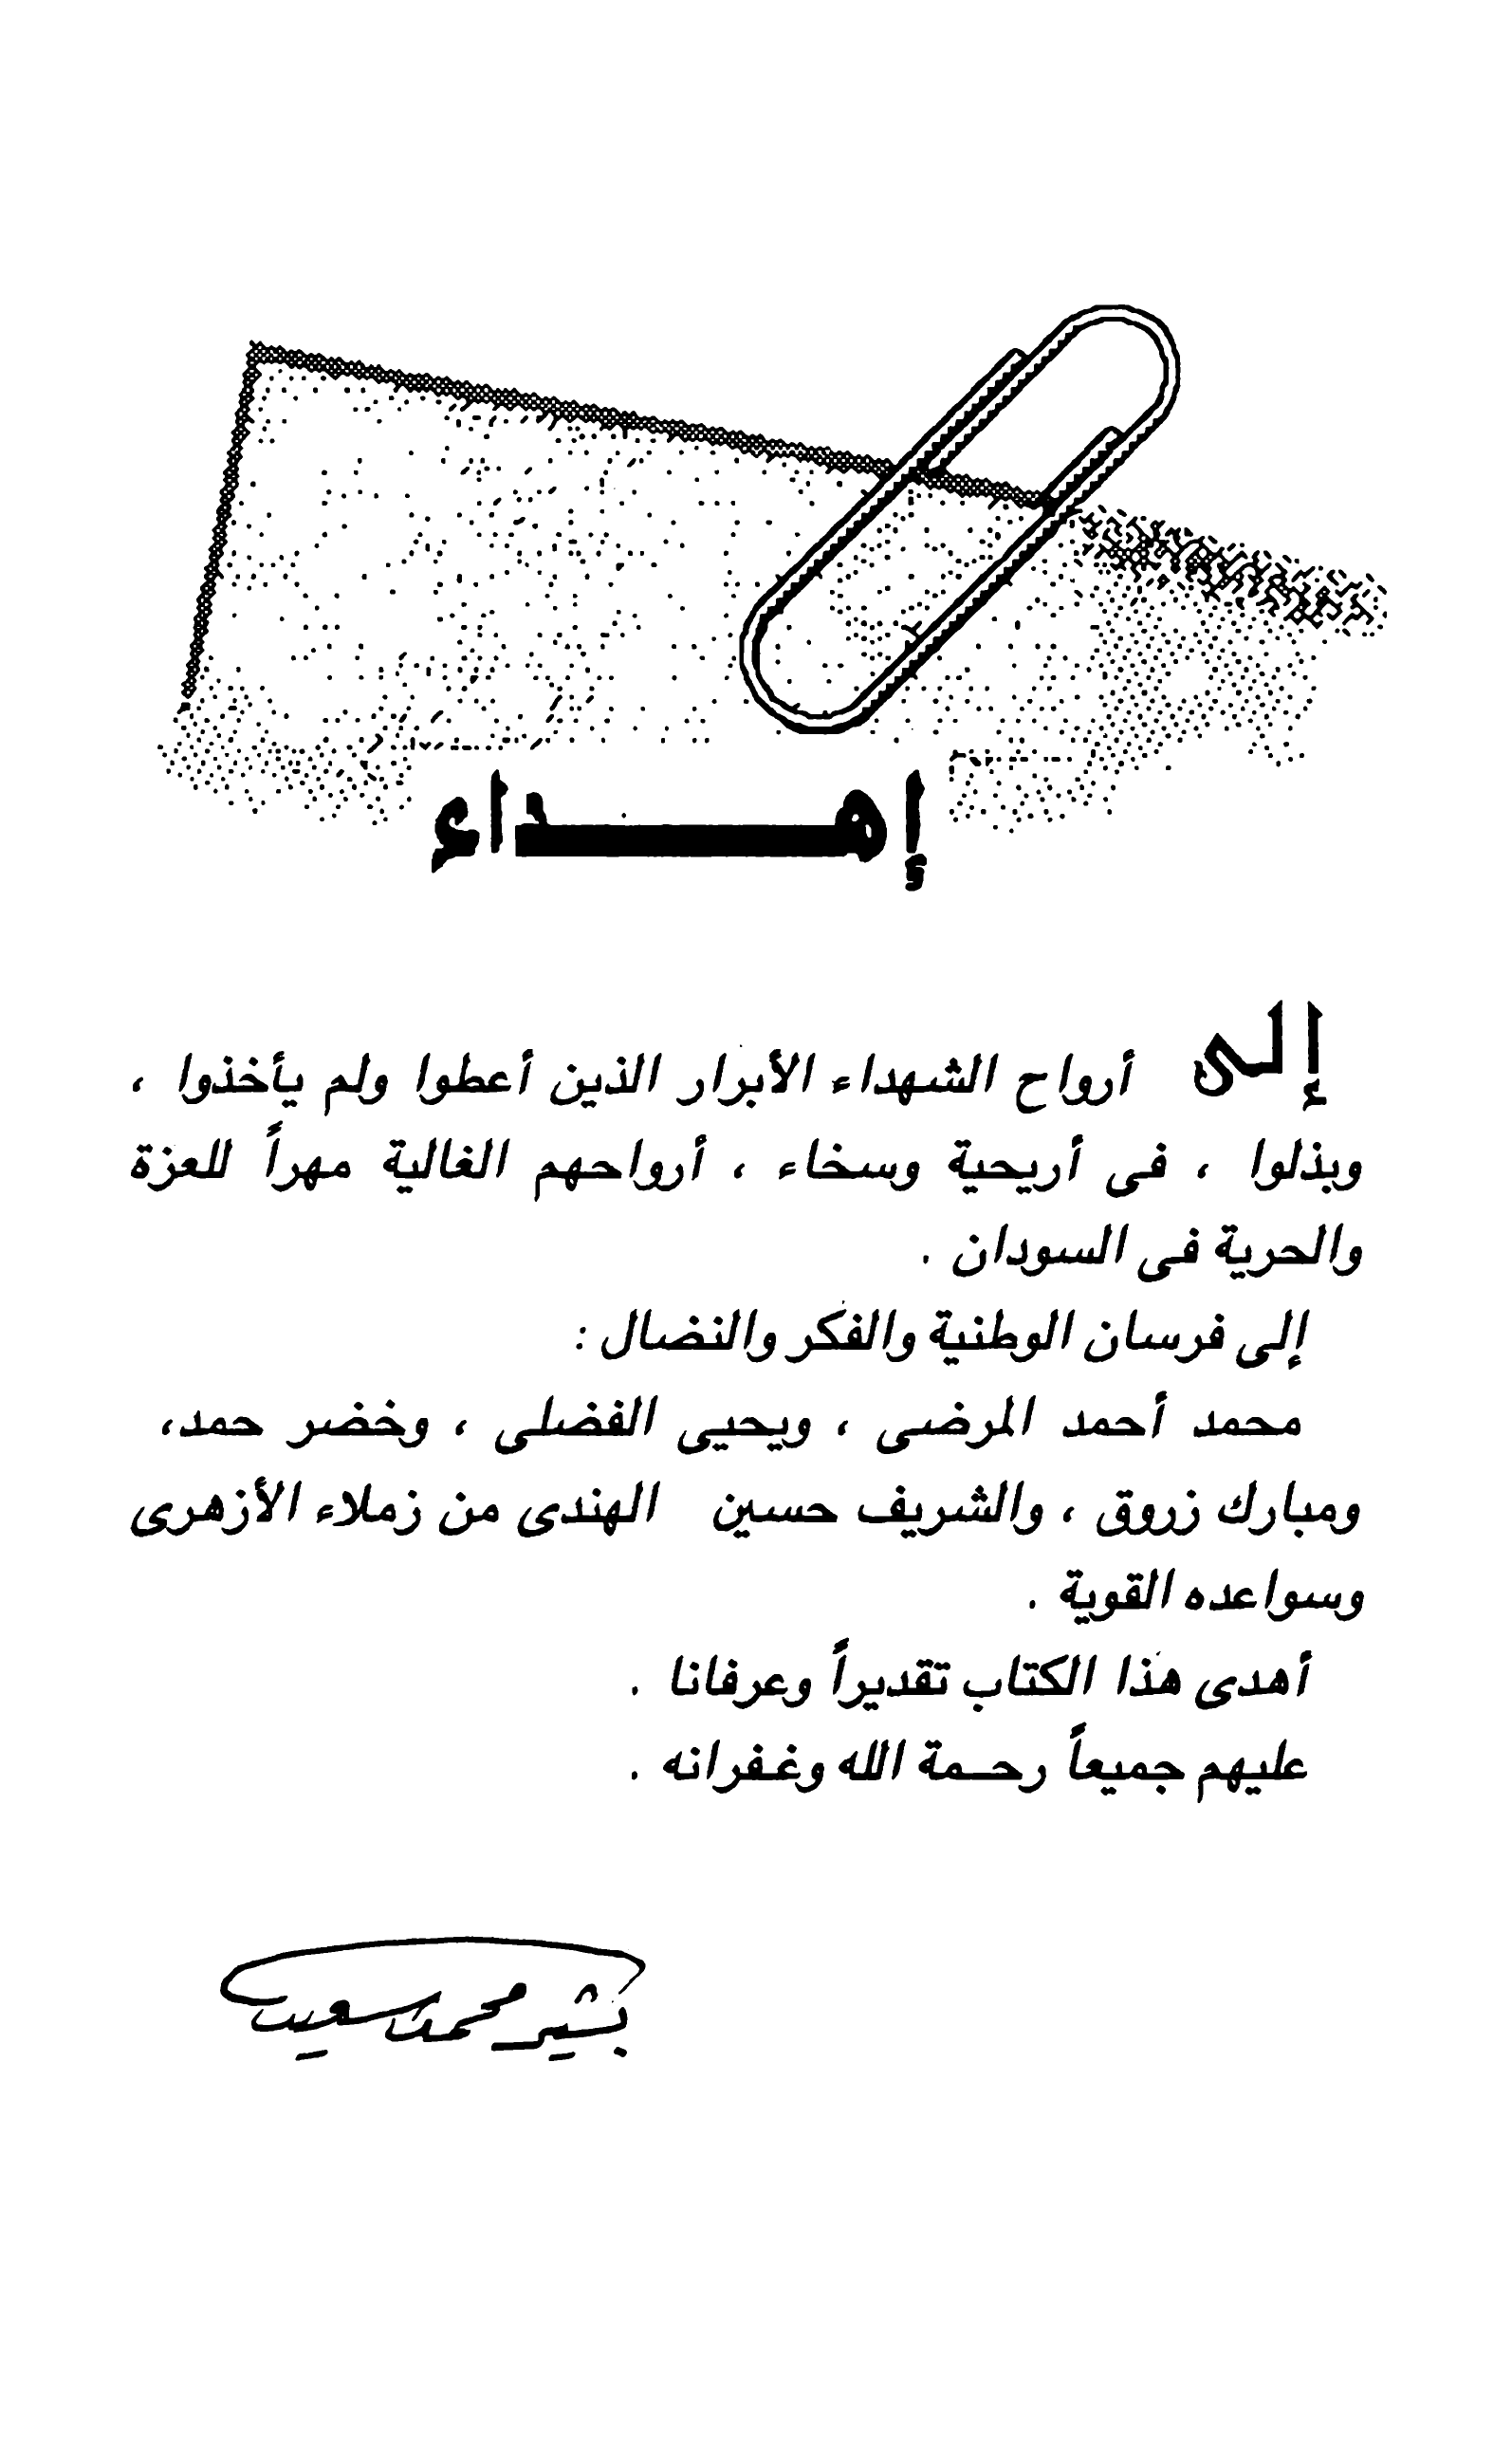 إهـــــداء
إلى أرواح الشهداء الأبرار الذين أعطوا ولم يأخذوا ،
وبذلوا ، فى أريحية وسخاء ، أرواحهم الغالية مهراً للعزة
والحرية فى السودان .
إلى فرسان الوطنية والفكر والنضال :
محمد أحمد المرضى ، ويحيى الفضلى ، وخضر حمد،
ومبارك زروق ، والشريف حسين الهندى من زملاء الأزهرى
وسواعده القوية .
أهدى هذا الكتاب تقديراً وعرفانا .
عليهم جميعاً رحـمة الله وغفرانه .
بشير محمد سعيد